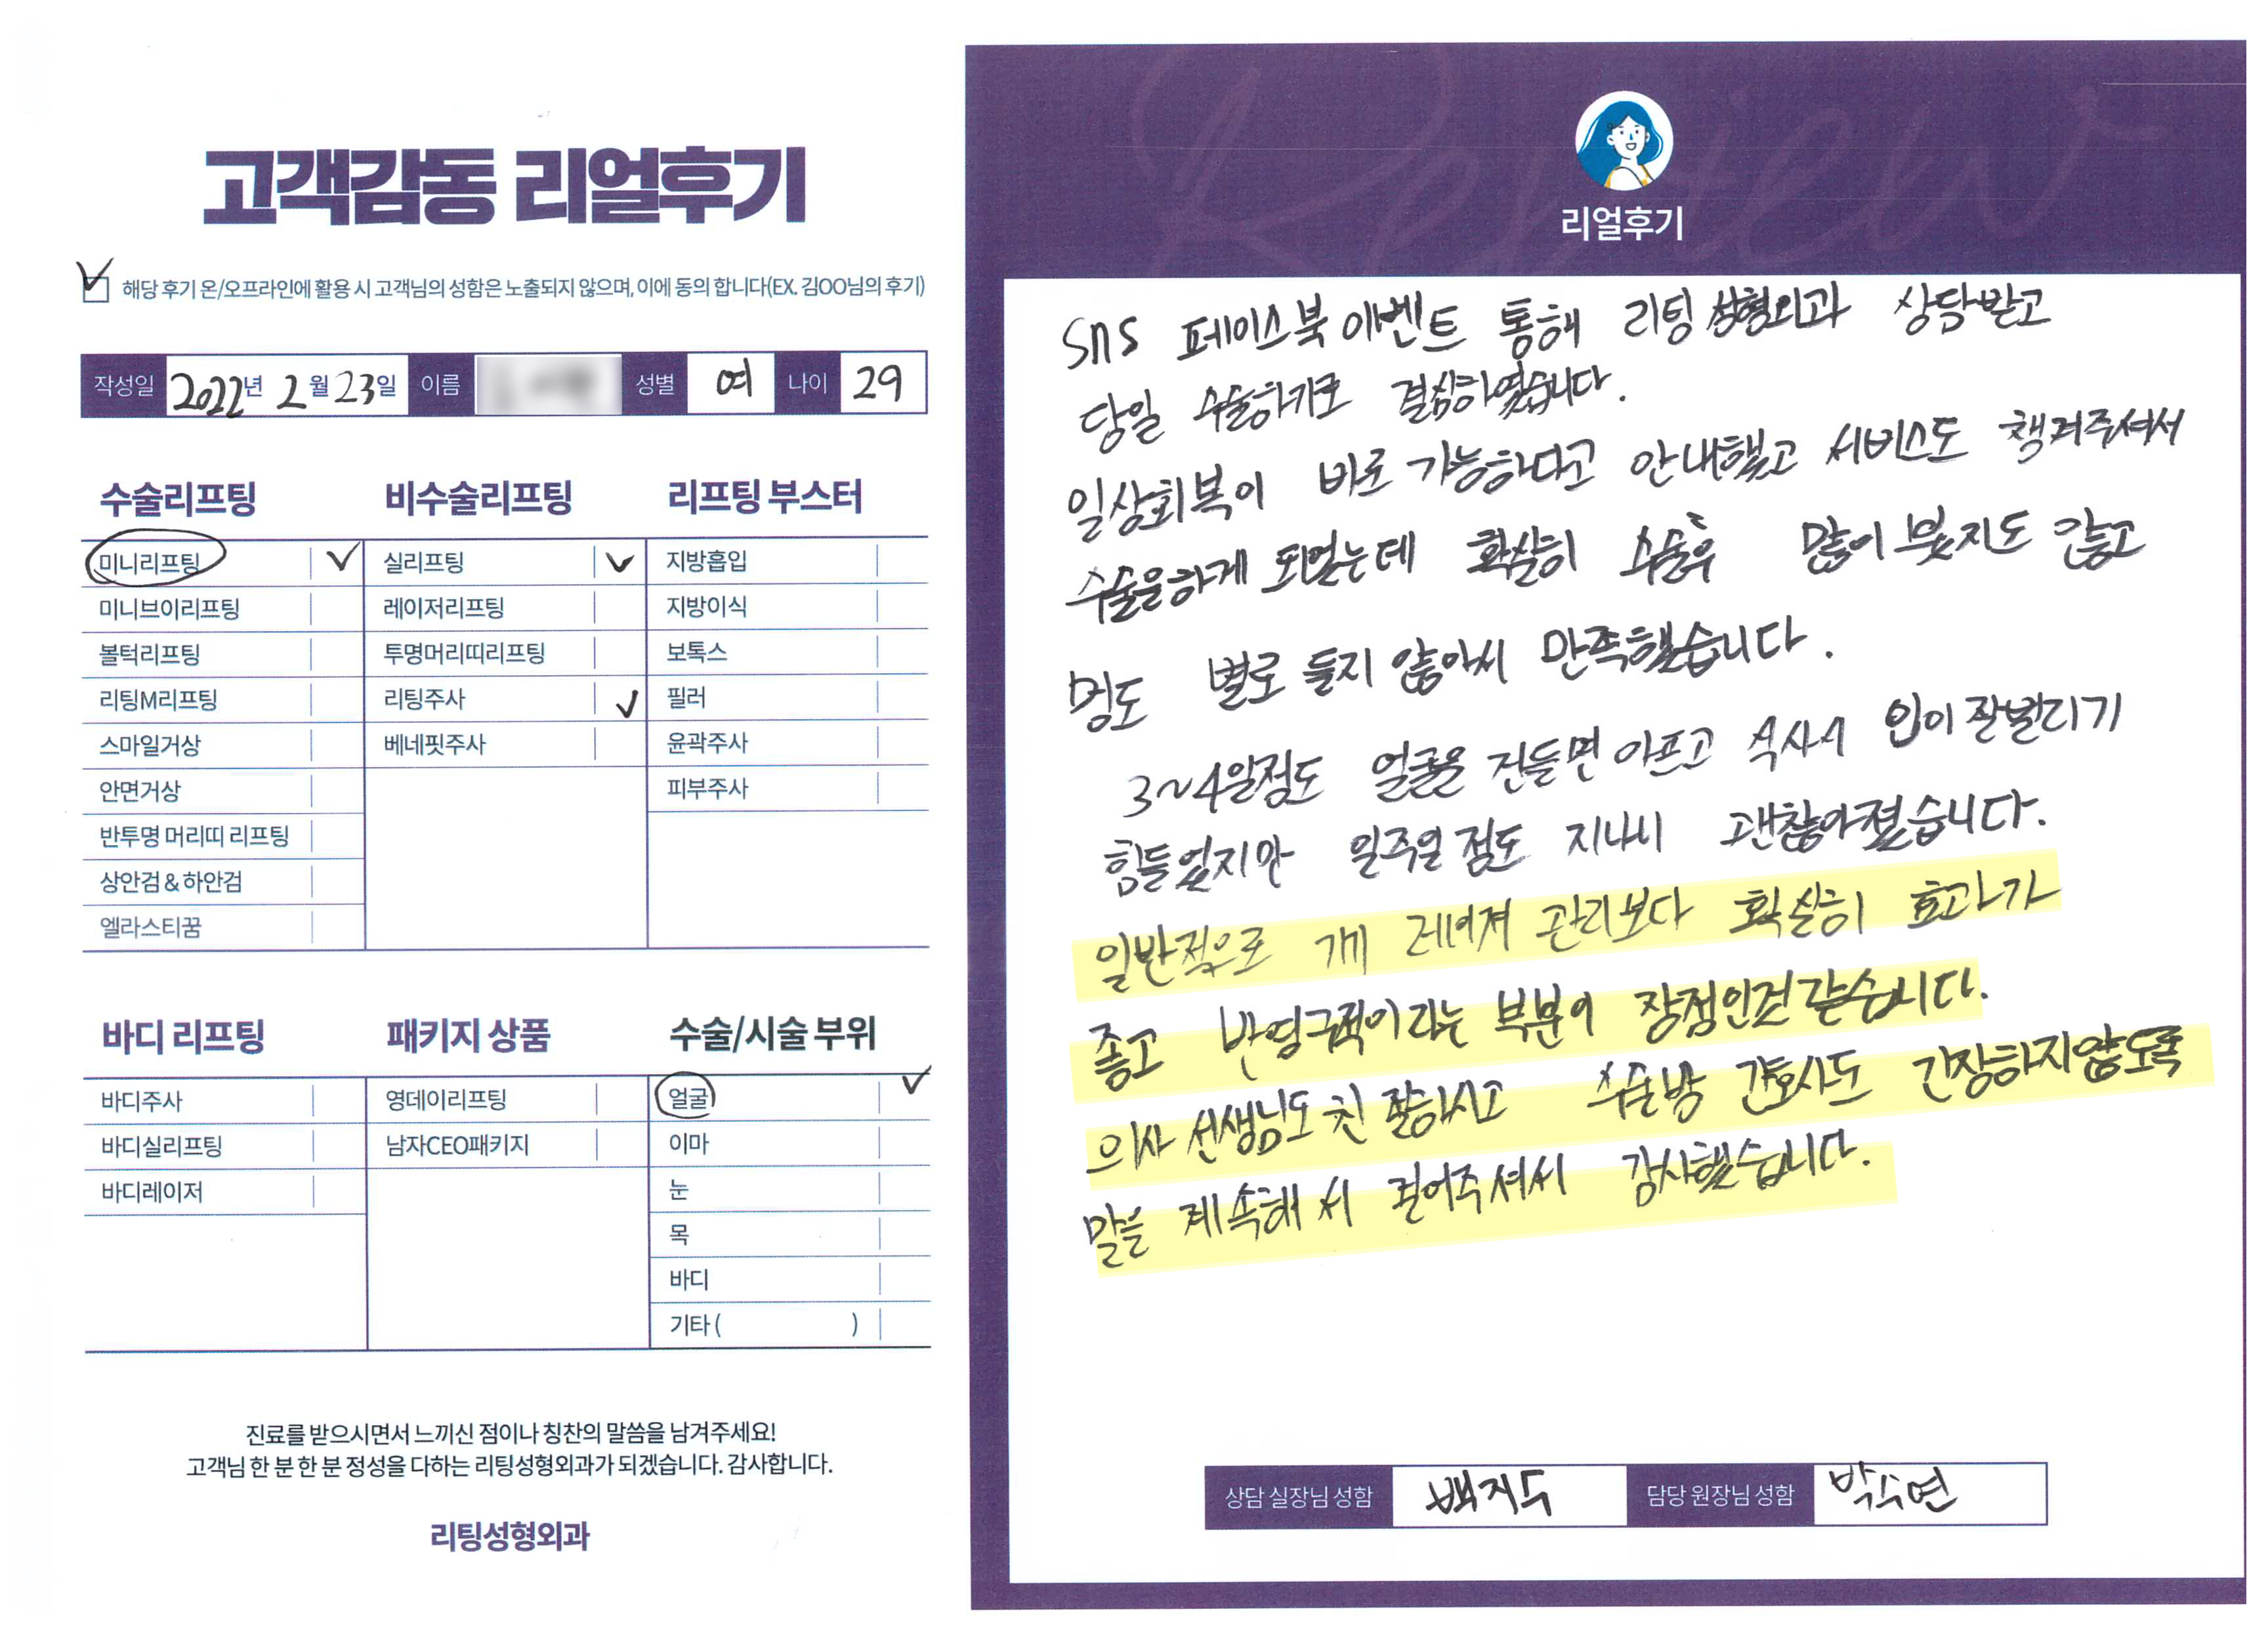 고객감동 리얼후기
해당 후기 온/오프라인에 활용 시 고객님의 성함은 노출되지 않으며, 이에 동의 합니다(EX. 김OO님의 후기)
작성일 2022년 2월 23일 이름 성별 여 나이 29
수술리프팅
미니리프팅
미니브이리프팅
볼턱리프팅
리팅M리프팅
스마일거상
안면거상
반투명 머리띠 리프팅
상안검 & 하안검
엘라스티꿈
비수술리프팅
실리프팅
레이저리프팅
투명머리띠리프팅
리팅주사
베네핏주사
리프팅 부스터
지방흡입
지방이식
보톡스
필러
윤곽주사
피부주사
바디 리프팅
바디주사
바디실리프팅
바디레이저
패키지 상품
영데이리프팅
남자CEO패키지
수술/시술 부위
얼굴
이마
눈
목
바디
기타 ( )
진료를 받으시면서 느끼신 점이나 칭찬의 말씀을 남겨주세요!
고객님 한 분 한 분 정성을 다하는 리팅성형외과가 되겠습니다. 감사합니다.
리팅성형외과
Review
리얼후기
SNS 페이스북 이벤트 통해 리팅 성형외과 상담받고
당일 수술하기로 결심하였습니다.
일상회복이 바로 가능하다고 안내했고 서비스도 챙겨주셔서
수술을하게 되었는데 확실히 수술후 많이 붓지도 않고
멍도 별로 들지 않아서 만족했습니다.
3~4일정도 얼굴을 건들면 아프고 식사시 입이 잘벌리기
힘들었지만 일주일 정도 지나니 괜찮아졌습니다.
일반적으로 레이져 관리보다 확실히 효과가
좋고 반영구적이라는 부분이 장점인것 같습니다.
의사 선생님도 잘하시고 수술방 간호사도 긴장하지않도록
말을 계속해서 걸어주셔서 감사했습니다.
상담 실장님 성함 백지수 담당 원장님 성함 박수연